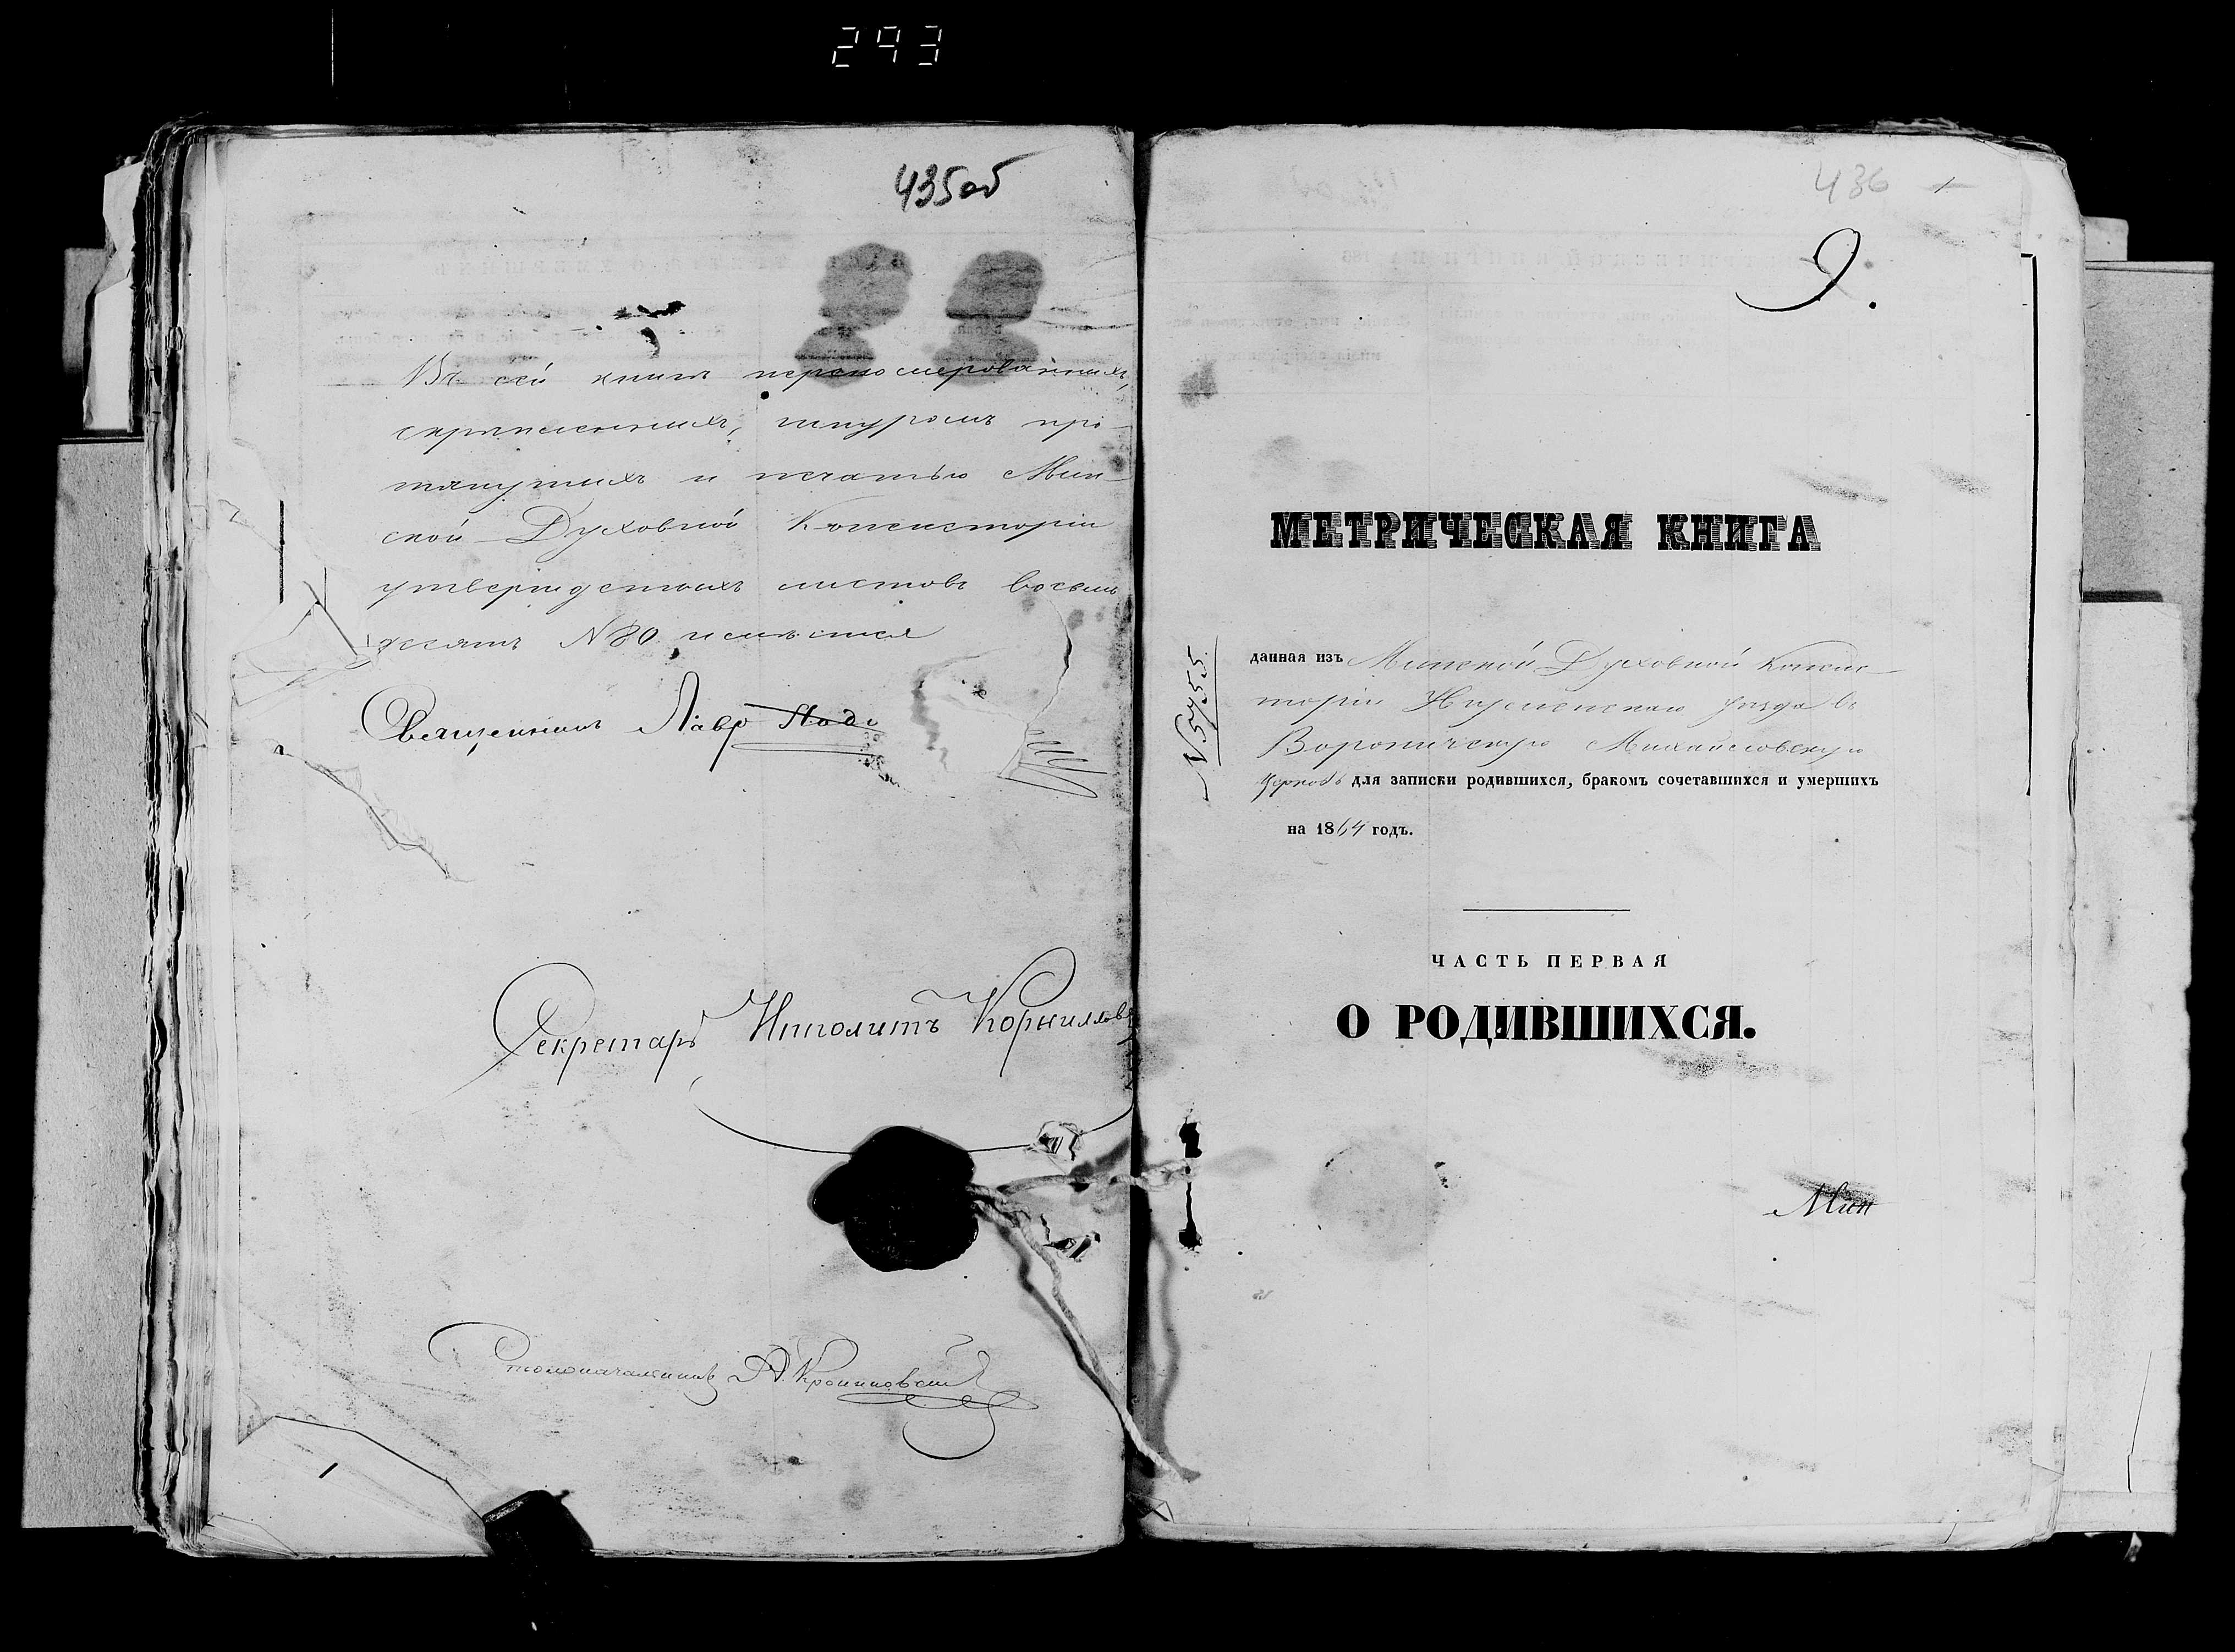 293
435об
Въ сей книгѣ перенумерованныхъ,
скрѣпленныхъ, шнуромъ про-
тянутыхъ и печатью Мин-
ской Духовной Консисторіи
утвержденныхъ листовъ восемь
десятъ № 80 имѣется
Священникъ Лавр
Секретарь Ипполитъ Корниловъ
Столоначальникъ
436
9.
МЕТРИЧЕСКАЯ КНИГА
№ 5755
данная изъ Минской Духовной Консис-
торіи Игуменскаго уѣзда въ
Вороничскую Михайловскую
Церковь для записки родившихся, бракомъ сочетавшихся и умершихъ
на 1864 годъ.
ЧАСТЬ ПЕРВАЯ
О РОДИВШИХСЯ.
Мин